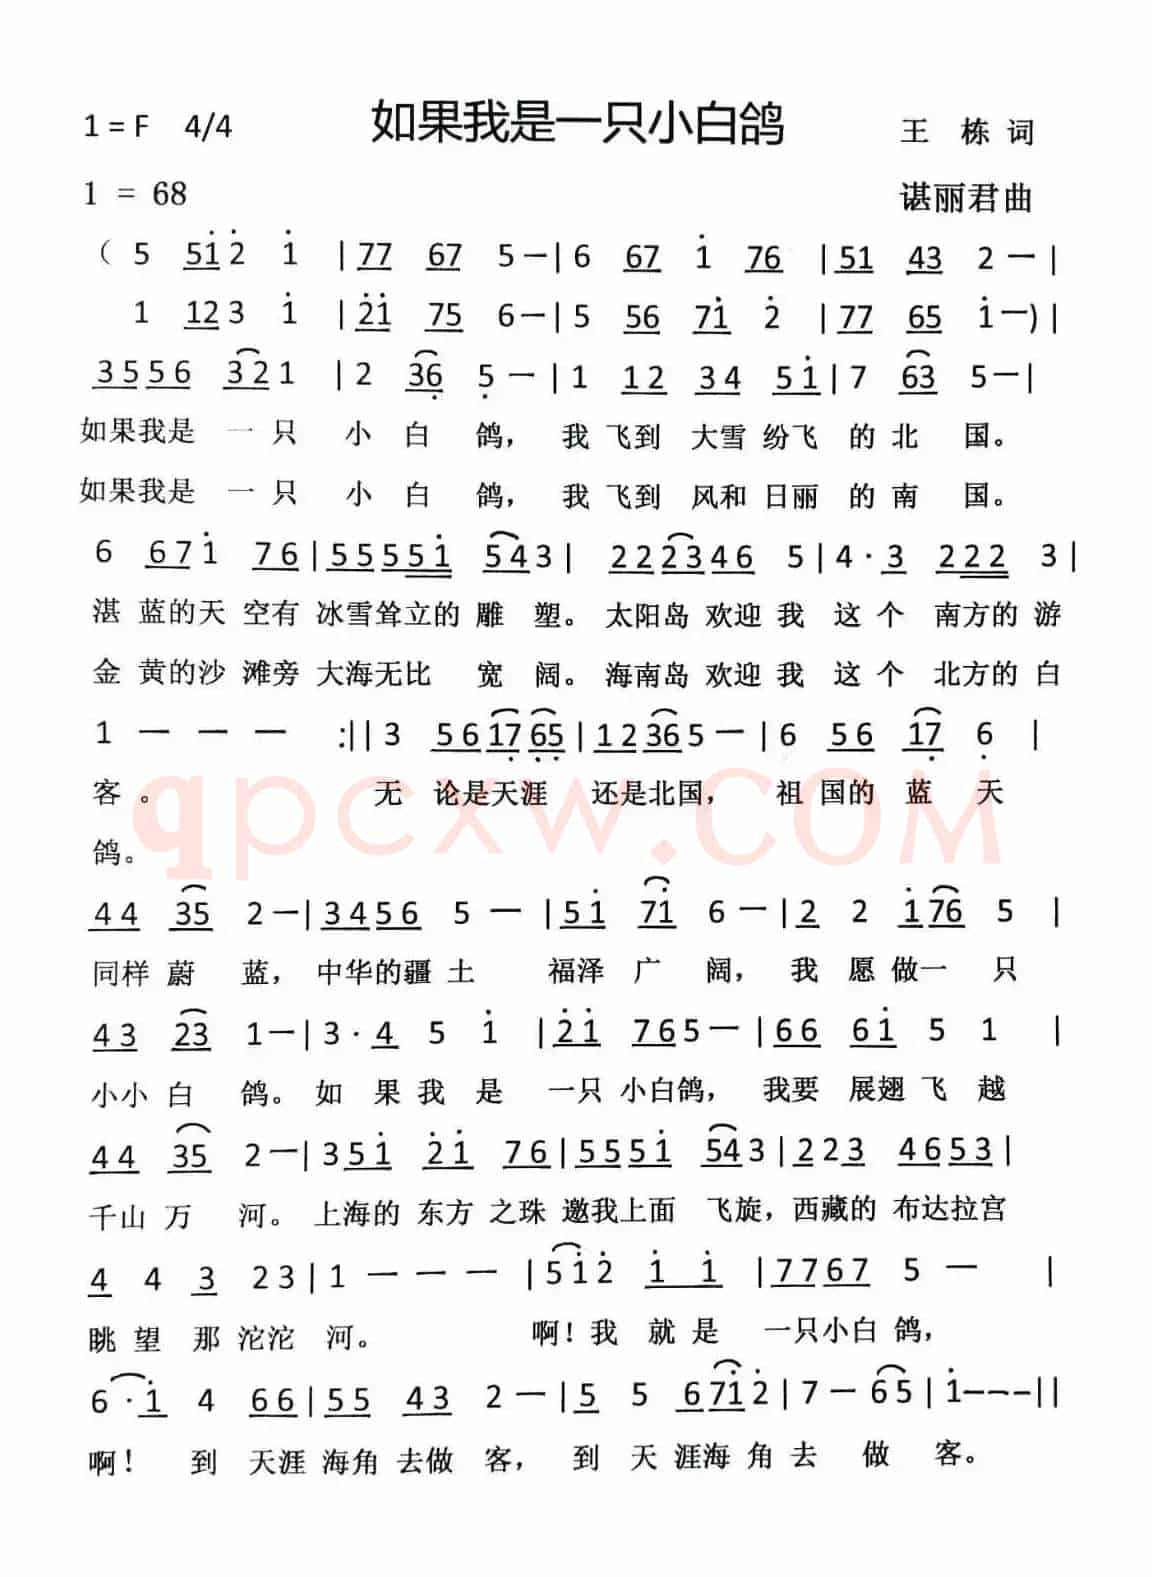 1 = F 4/4 如果我是一只小白鸽 王 栋 词
1 = 68 谌丽君曲
( 5 5 1̇ 2̇ 1̇ | 77 67 5 — | 6 67 1̇ 76 | 51 43 2 — |
1 12 3 1̇ | 2̇1̇ 75 6 — | 5 56 71̇ 2̇ | 77 65 1̇ — ) |
3 5 5 6 3 2 1 | 2 36̣ 5̣ — | 1 1 2 3 4 5 1̇ | 7 63 5 — |
如果我是 一 只 小 白 鸽， 我 飞到 大雪 纷飞 的 北 国。
如果我是 一 只 小 白 鸽， 我 飞到 风和 日丽 的 南 国。
6 6 7 1̇ 7 6 | 5 5 5 5 1̇ 5 4 3 | 2 2 2 3 4 6 5 | 4 · 3 2 2 2 3 |
湛 蓝的天 空有 冰雪耸立的 雕 塑。 太阳岛 欢迎 我 这 个 南方的 游
金 黄的沙 滩旁 大海无比 宽 阔。 海南岛 欢迎 我 这 个 北方的 白
1 — — — :|| 3 5 6 17̣ 6̣5̣ | 1 2 36 5 — | 6 5 6 17̣ 6̣ |
客 。 无 论是天 涯 还是北国， 祖 国的 蓝 天
鸽。
qpcxw.COM
4 4 35 2 — | 3 4 5 6 5 — | 5 1̇ 71̇ 6 — | 2 2 1̇ 76 5 |
同样 蔚 蓝， 中华的疆 土 福泽 广 阔， 我 愿 做一 只
4 3 23 1 — | 3 · 4 5 1̇ | 2̇ 1̇ 7 6 5 — | 6 6 6 1̇ 5 1 |
小小 白 鸽。 如 果 我 是 一只 小白鸽， 我要 展翅 飞 越
4 4 35 2 — | 3 5 1̇ 2̇ 1̇ 7 6 | 5 5 5 1̇ 54 3 | 2 2 3 4 6 5 3 |
千山 万 河。 上海的 东方 之珠 邀我上面 飞旋，西藏的 布达拉宫
4 4 3 2 3 | 1 — — — | 5 1̇ 2̇ 1̇ 1̇ | 7 7 6 7 5 — |
眺 望 那 沱沱 河。 啊！我 就 是 一只小白 鸽，
6 · 1̇ 4 6 6 | 5 5 4 3 2 — | 5 5 6 7 1̇ 2̇ | 7 — 6 5 | 1̇ — — — ||
啊！ 到 天涯 海角 去做 客， 到 天 涯海 角 去 做 客。